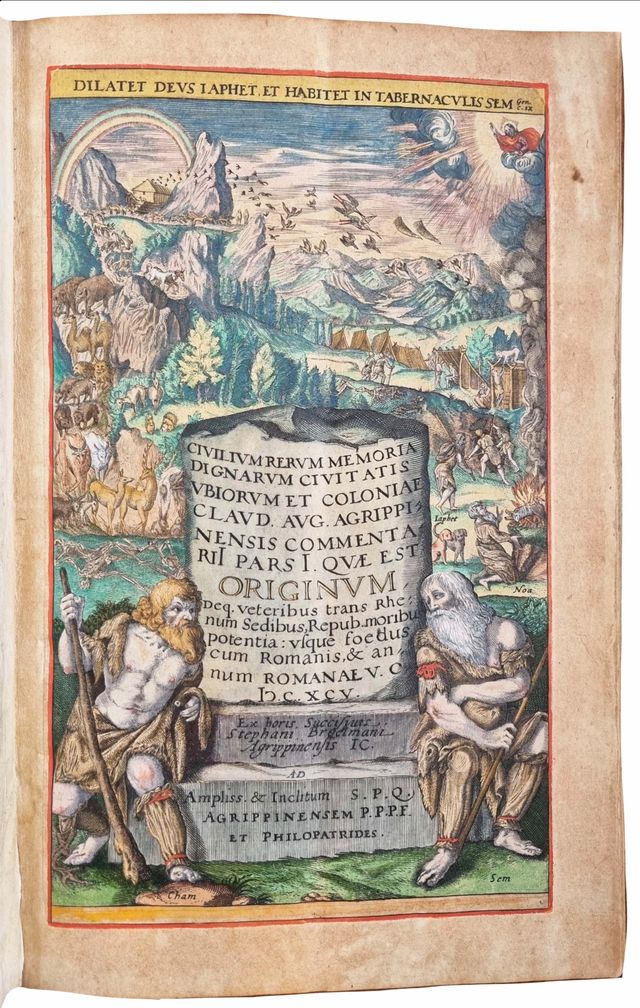 DILATET DEVS IAPHET, ET HABITET IN TABERNACVLIS SEM Gen. c. IX
CIVILIVM RERVM MEMORIA
DIGNARVM CIVITATIS
VBIORVM ET COLONIAE
CLAVD. AUG. AGRIPPI⸗
NENSIS COMMENTA⸗
RII PARS I. QVÆ EST
ORIGINVM
Deq. veteribus trans Rhe⸗
num Sedibus, Repub. moribus
potentia: vsque foedus
cum Romanis, & an⸗
num ROMANAE V. C
IↃ.C.XCV.
Iaphet
Noa
Ex horis Succisiuis
Stephani Broelmani
Agrippinensis IC.
AD
Ampliss. & Inclitum S. P. Q.
AGRIPPINENSEM P.P.P.F.
ET PHILOPATRIDES.
Cham
Sem